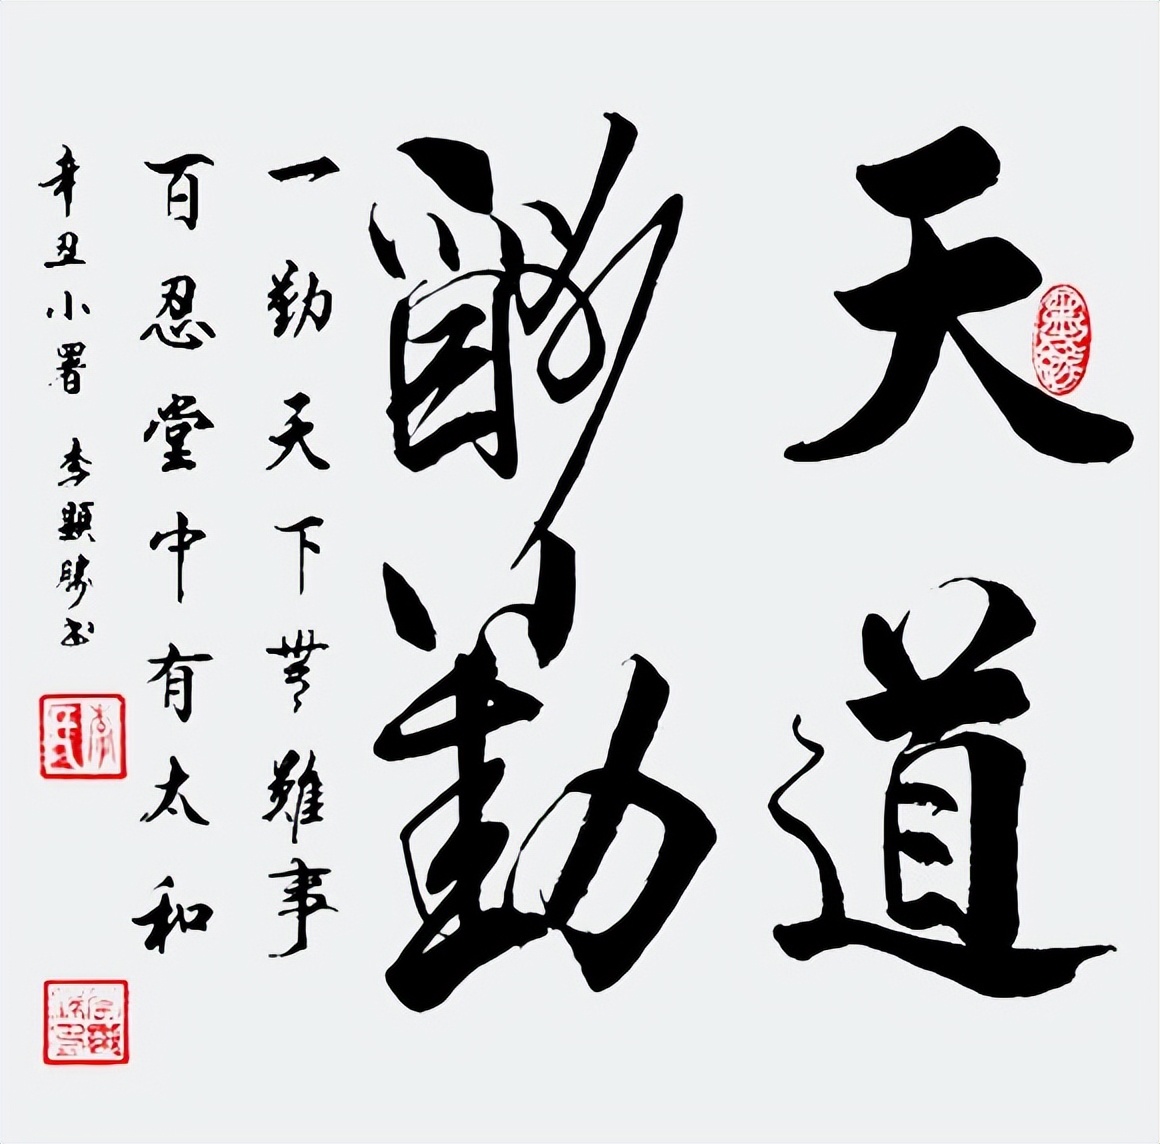 天道
酬勤
一勤天下無難事
百忍堂中有太和
辛丑小署 李顯勝书